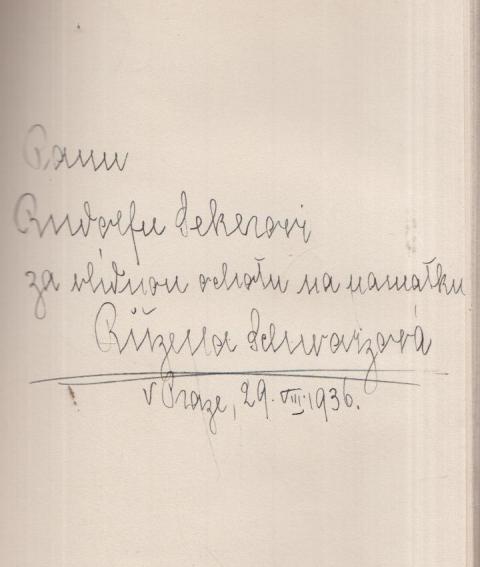 Panu
Rudolfu Sekerovi
za vlídnou ochotu na památku
Růžena Schwarzová
v Praze, 29. VIII. 1936.